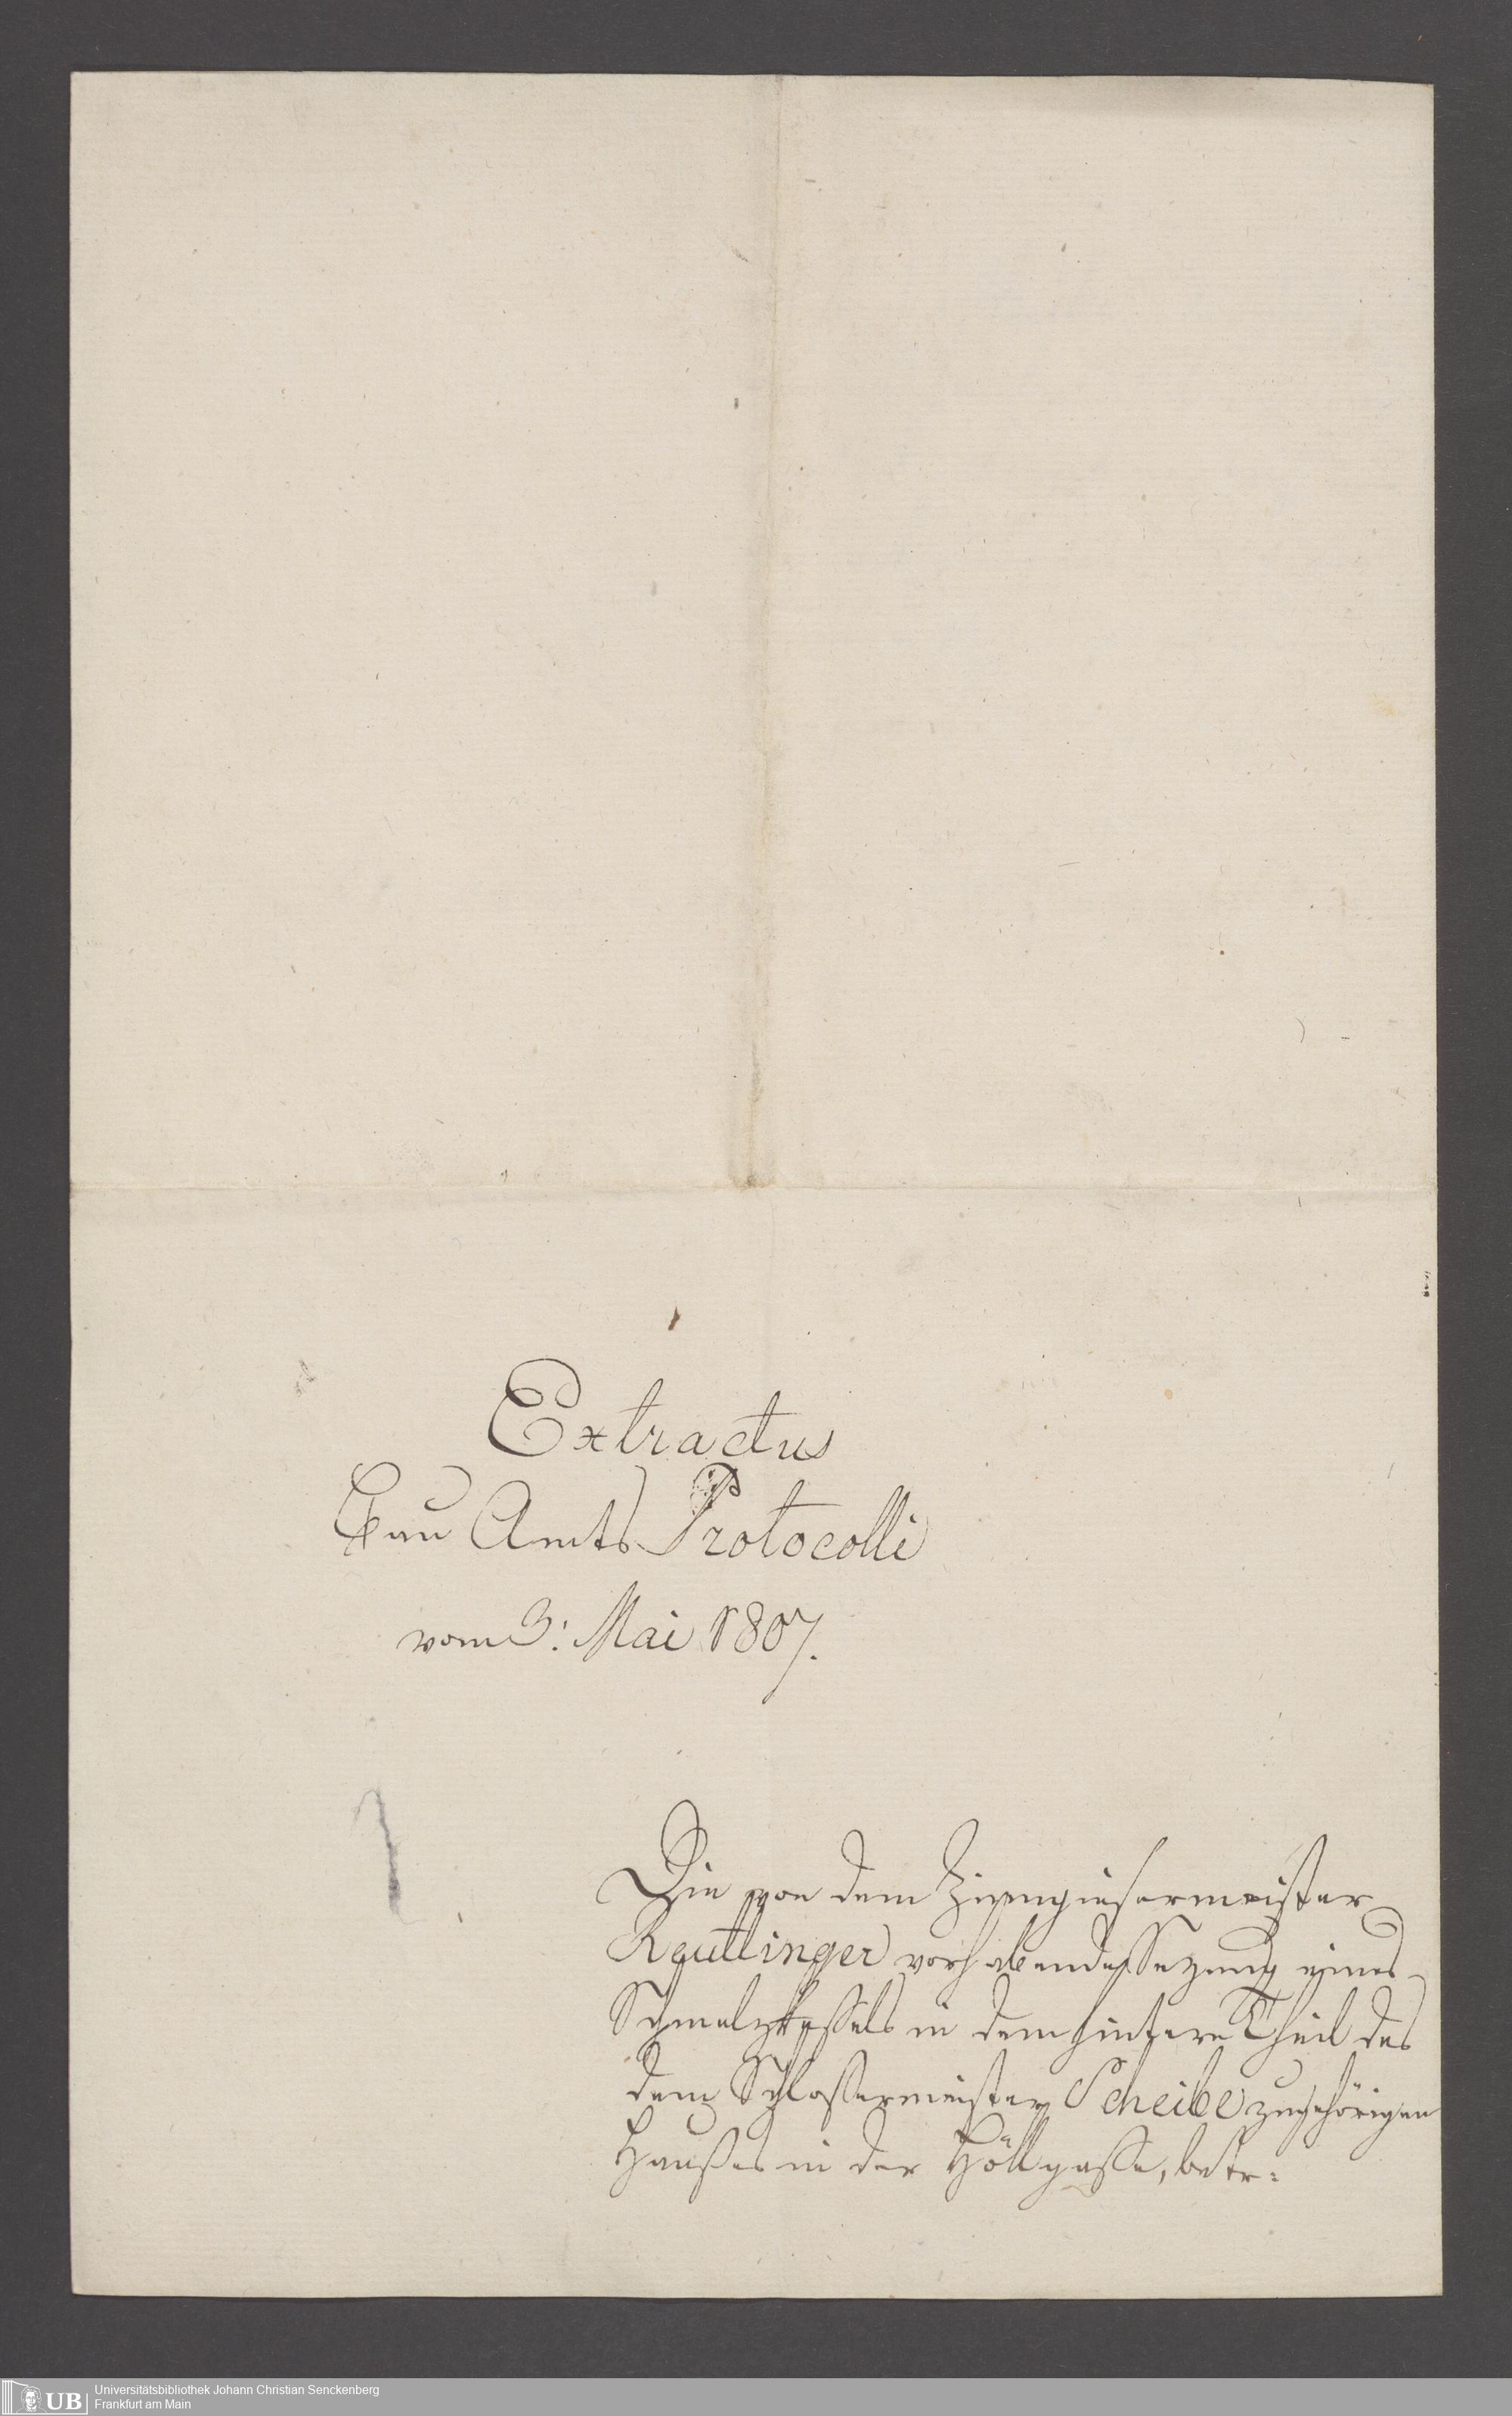 Extractus
Bau Amts Protocolli
vom 3: Mai 1807.
1
Die von dem Zinngiesermeister
Reutlinger vorhabende Setzung eines
Schmelzkeßels in dem hintern Theil des
dem Schloßermeister Scheibe zugehörigen
Haußes in der Höllgaße, betr:
UB
Universitätsbibliothek Johann Christian Senckenberg
Frankfurt am Main